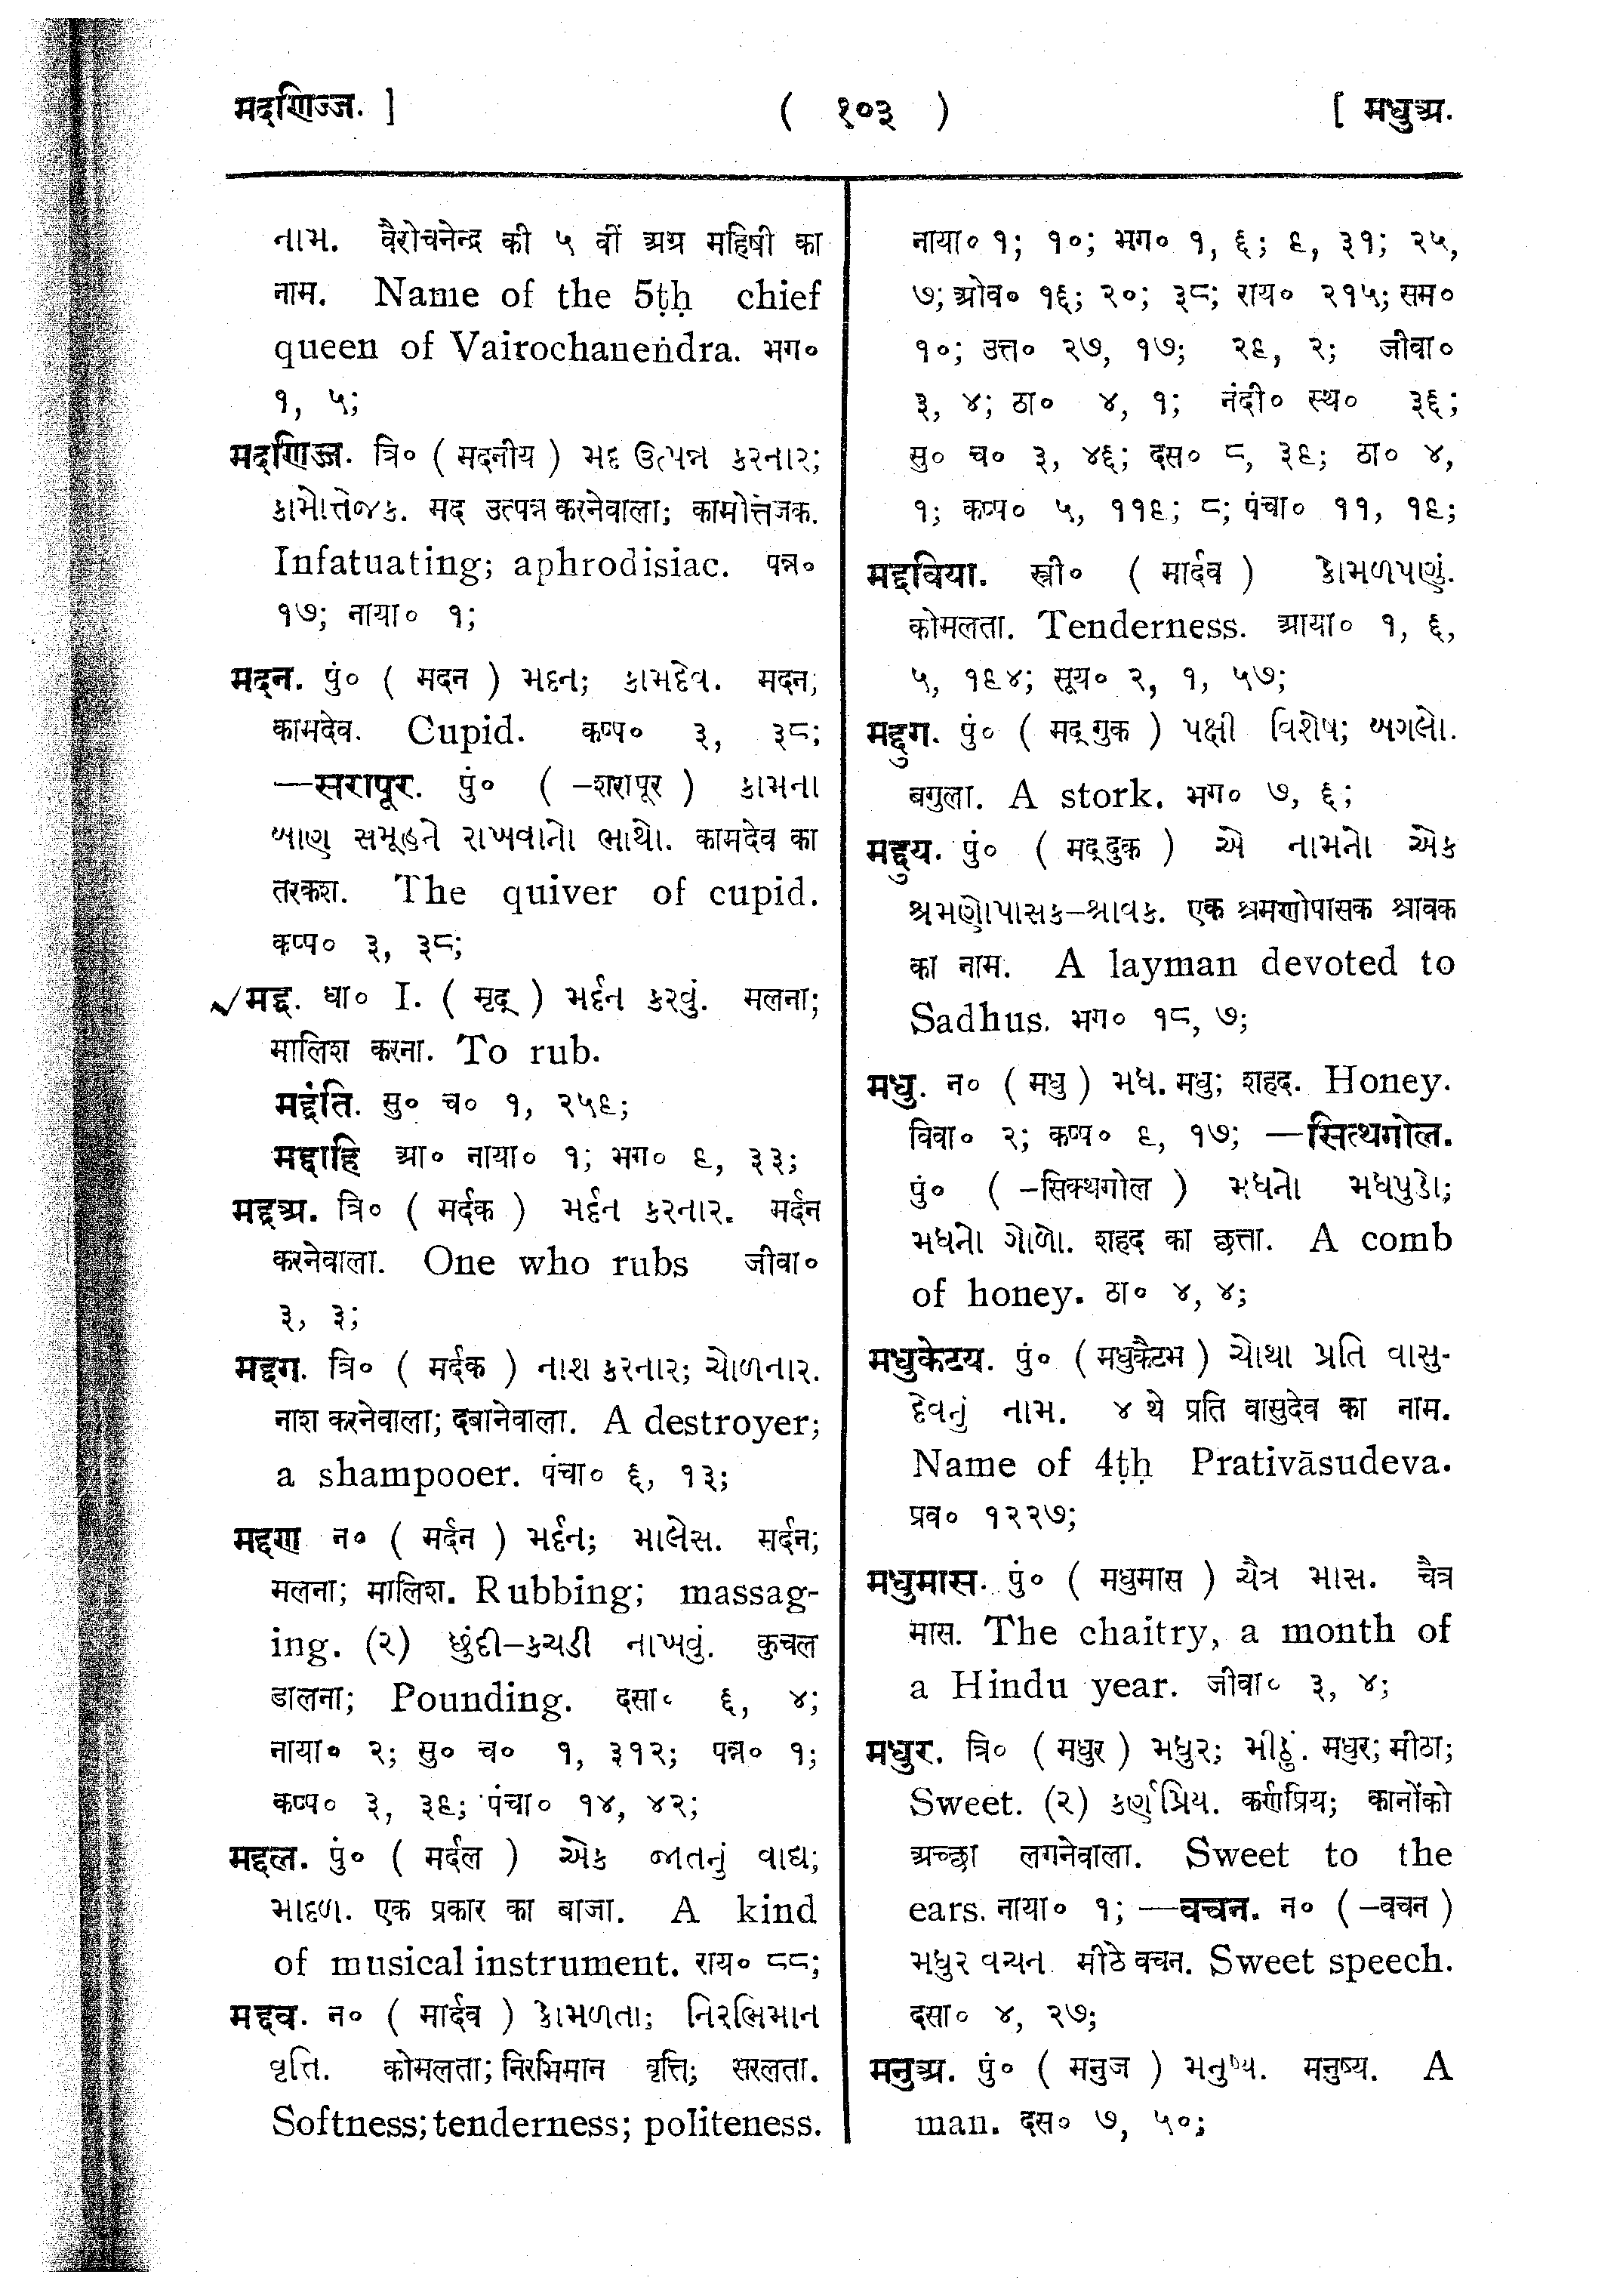 मदणिज्ज. ] ( १०३ ) [ मधुअ.
નામ. वैरोचनेन्द्र की ५ वीं अग्र महिषी का
नाम. Name of the 5ṭḥ chief
queen of Vairochaneṅdra. भग०
१, ५;
मदणिज्ज. त्रि० ( मदनीय ) મદ ઉત્પન્ન કરનાર;
કામોત્તેજક. मद उत्पन्न करनेवाला; कामोत्तेजक.
Infatuating; aphrodisiac. पन्न०
१७; नाया० १;
मदन. पुं० ( मदन ) મદન; કામદેવ. मदन;
कामदेव. Cupid. कप्प० ३, ३८;
—सरापूर. पुं० ( –शरापूर ) કામના
બાણ સમૂહને રાખવાનો ભાથો. कामदेव का
तरकश. The quiver of cupid.
कप्प० ३, ३८;
√मद्द. धा० I. ( मृद् ) મર્દન કરવું. मलना;
मालिश करना. To rub.
मद्दंति. सु० च० १, २५६;
मद्दाहि आ० नाया० १; भग० ६, ३३;
मद्दअ. त्रि० ( मर्दक ) મર્દન કરનાર. मर्दन
करनेवाला. One who rubs जीवा०
३, ३;
मद्दग. त्रि० ( मर्दक ) નાશ કરનાર; ચોળનાર.
नाश करनेवाला; दबानेवाला. A destroyer;
a shampooer. पंचा० ६, १३;
मद्दण न० ( मर्दन ) મર્દન; માલેસ. मर्दन;
मलना; मालिश. Rubbing; massag-
ing. (२) છુંદી–કચડી નાખવું. कुचल
डालना; Pounding. दसा० ६, ४;
नाया० २; सु० च० १, ३१२; पन्न० १;
कप्प० ३, ३६; पंचा० १४, ४२;
मद्दल. पुं० ( मर्दल ) એક જાતનું વાદ્ય;
માદળ. एक प्रकार का बाजा. A kind
of musical instrument. राय० ८८;
मद्दव. न० ( मार्दव ) કોમળતા; નિરભિમાન
વૃત્તિ. कोमलता; निरभिमान वृत्ति; सरलता.
Softness; tenderness; politeness.
नाया० १; १०; भग० १, ६; ६, ३१; २५,
७; ओव० १६; २०; ३८; राय० २१५; सम०
१०; उत्त० २७, १७; २६, २; जीवा०
३, ४; ठा० ४, १; नंदी० स्थ० ३६;
सु० च० ३, ४६; दस० ८, ३६; ठा० ४,
१; कप्प० ५, ११६; ८; पंचा० ११, १६;
मद्दविया. स्त्री० ( मार्दव ) કોમળપણું.
कोमलता. Tenderness. आया० १, ६,
५, १६४; सूय० २, १, ५७;
मद्दुग. पुं० ( मद्गुक ) પક્ષી વિશેષ; બગલો.
बगुला. A stork. भग० ७, ६;
मद्दुय. पुं० ( मद्दुक ) એ નામનો એક
શ્રમણોપાસક–શ્રાવક. एक श्रमणोपासक श्रावक
का नाम. A layman devoted to
Sadhus. भग० १८, ७;
मधु. न० ( मधु ) મધ. मधु; शहद. Honey.
विवा० २; कप्प० ६, १७; —सित्थगोल.
पुं० ( –सिक्थगोल ) મધનો મધપુડો;
મધનો ગોળો. शहद का छत्ता. A comb
of honey. ठा० ४, ४;
मधुकेटय. पुं० ( मधुकैटभ ) ચોથા પ્રતિ વાસુ-
દેવનું નામ. ४ थे प्रति वासुदेव का नाम.
Name of 4ṭḥ Prativāsudeva.
प्रव० १२२७;
मधुमास. पुं० ( मधुमास ) ચૈત્ર માસ. चैत्र
मास. The chaitry, a month of
a Hindu year. जीवा० ३, ४;
मधुर. त्रि० ( मधुर ) મધુર; મીઠું. मधुर; मीठा;
Sweet. (२) કર્ણપ્રિય. कर्णप्रिय; कानोंको
अच्छा लगनेवाला. Sweet to the
ears. नाया० १; —वचन. न० ( –वचन )
મધુર વચન. मीठे वचन. Sweet speech.
दसा० ४, २७;
मनुअ. पुं० ( मनुज ) મનુષ્ય. मनुष्य. A
man. दस० ७, ५०;